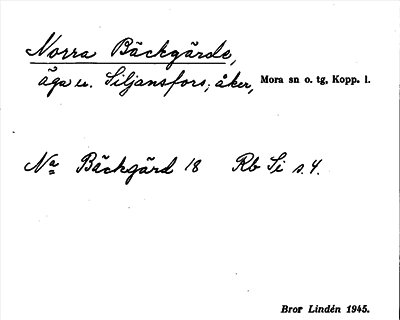 Norra Bäckgärde,
äga u. Siljansfors; åker, Mora sn o. tg, Kopp. l.
Na Bäckgärd 18 Rb Si s. 4.
Bror Lindén 1945.